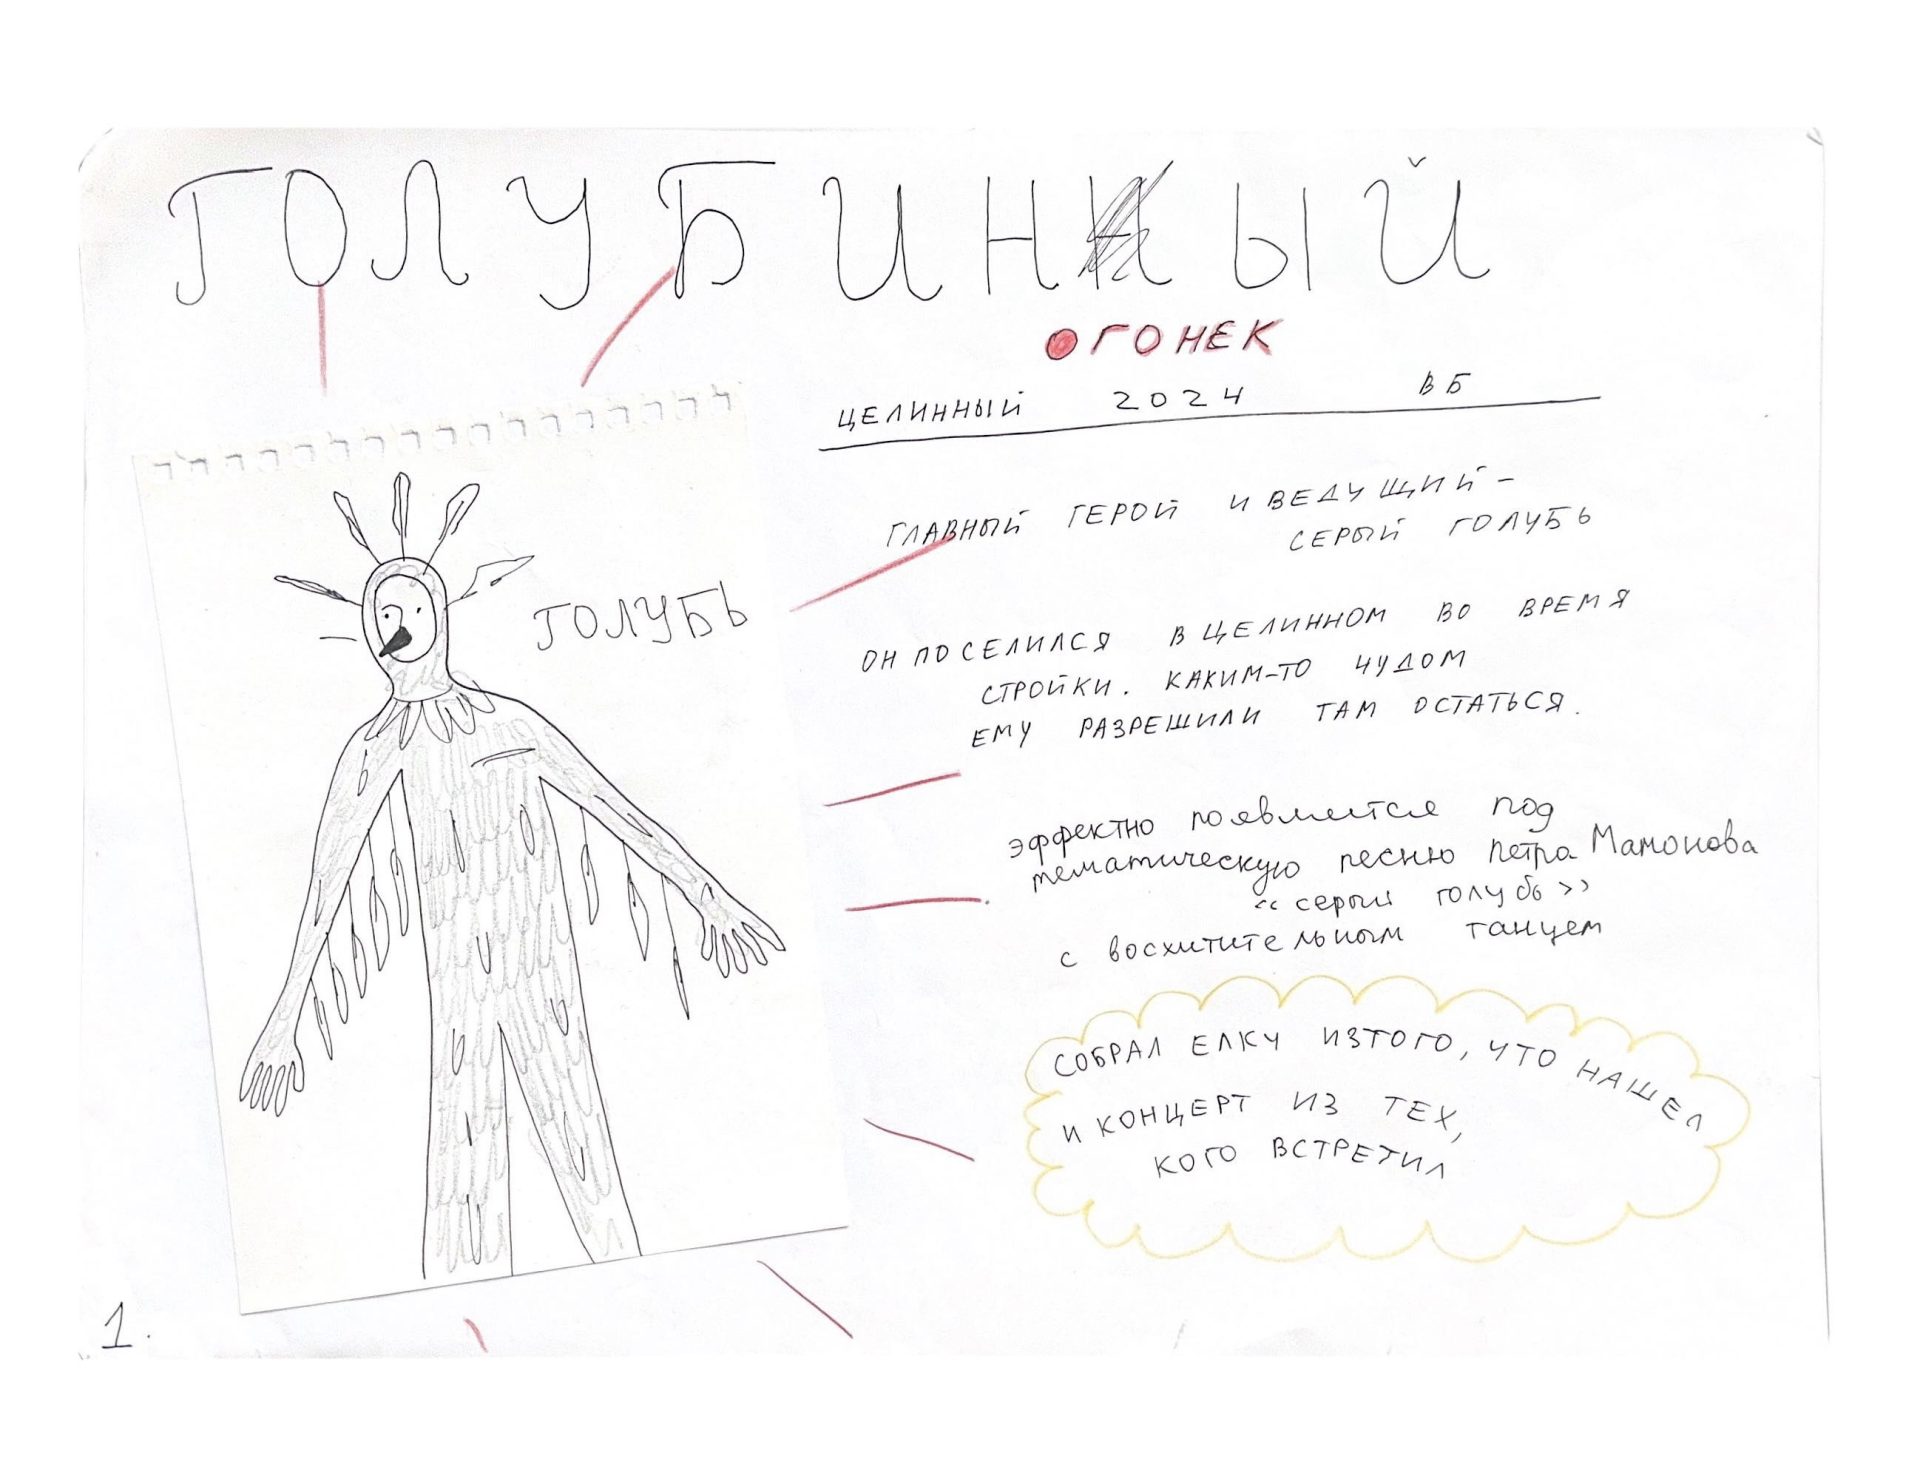 ГОЛУБИНЫЙ
ОГОНЕК
ЦЕЛИННЫЙ 2024 ВБ
ГЛАВНЫЙ ГЕРОЙ И ВЕДУЩИЙ -
СЕРЫЙ ГОЛУБЬ
ГОЛУБЬ
ОН ПОСЕЛИЛСЯ В ЦЕЛИННОМ ВО ВРЕМЯ
СТРОЙКИ. КАКИМ-ТО ЧУДОМ
ЕМУ РАЗРЕШИЛИ ТАМ ОСТАТЬСЯ.
эффектно появляется под
тематическую песню петра Мамонова
«серый голубь»
с восхитительным танцем
СОБРАЛ ЕЛКУ ИЗ ТОГО, ЧТО НАШЕЛ
И КОНЦЕРТ ИЗ ТЕХ,
КОГО ВСТРЕТИЛ
1.